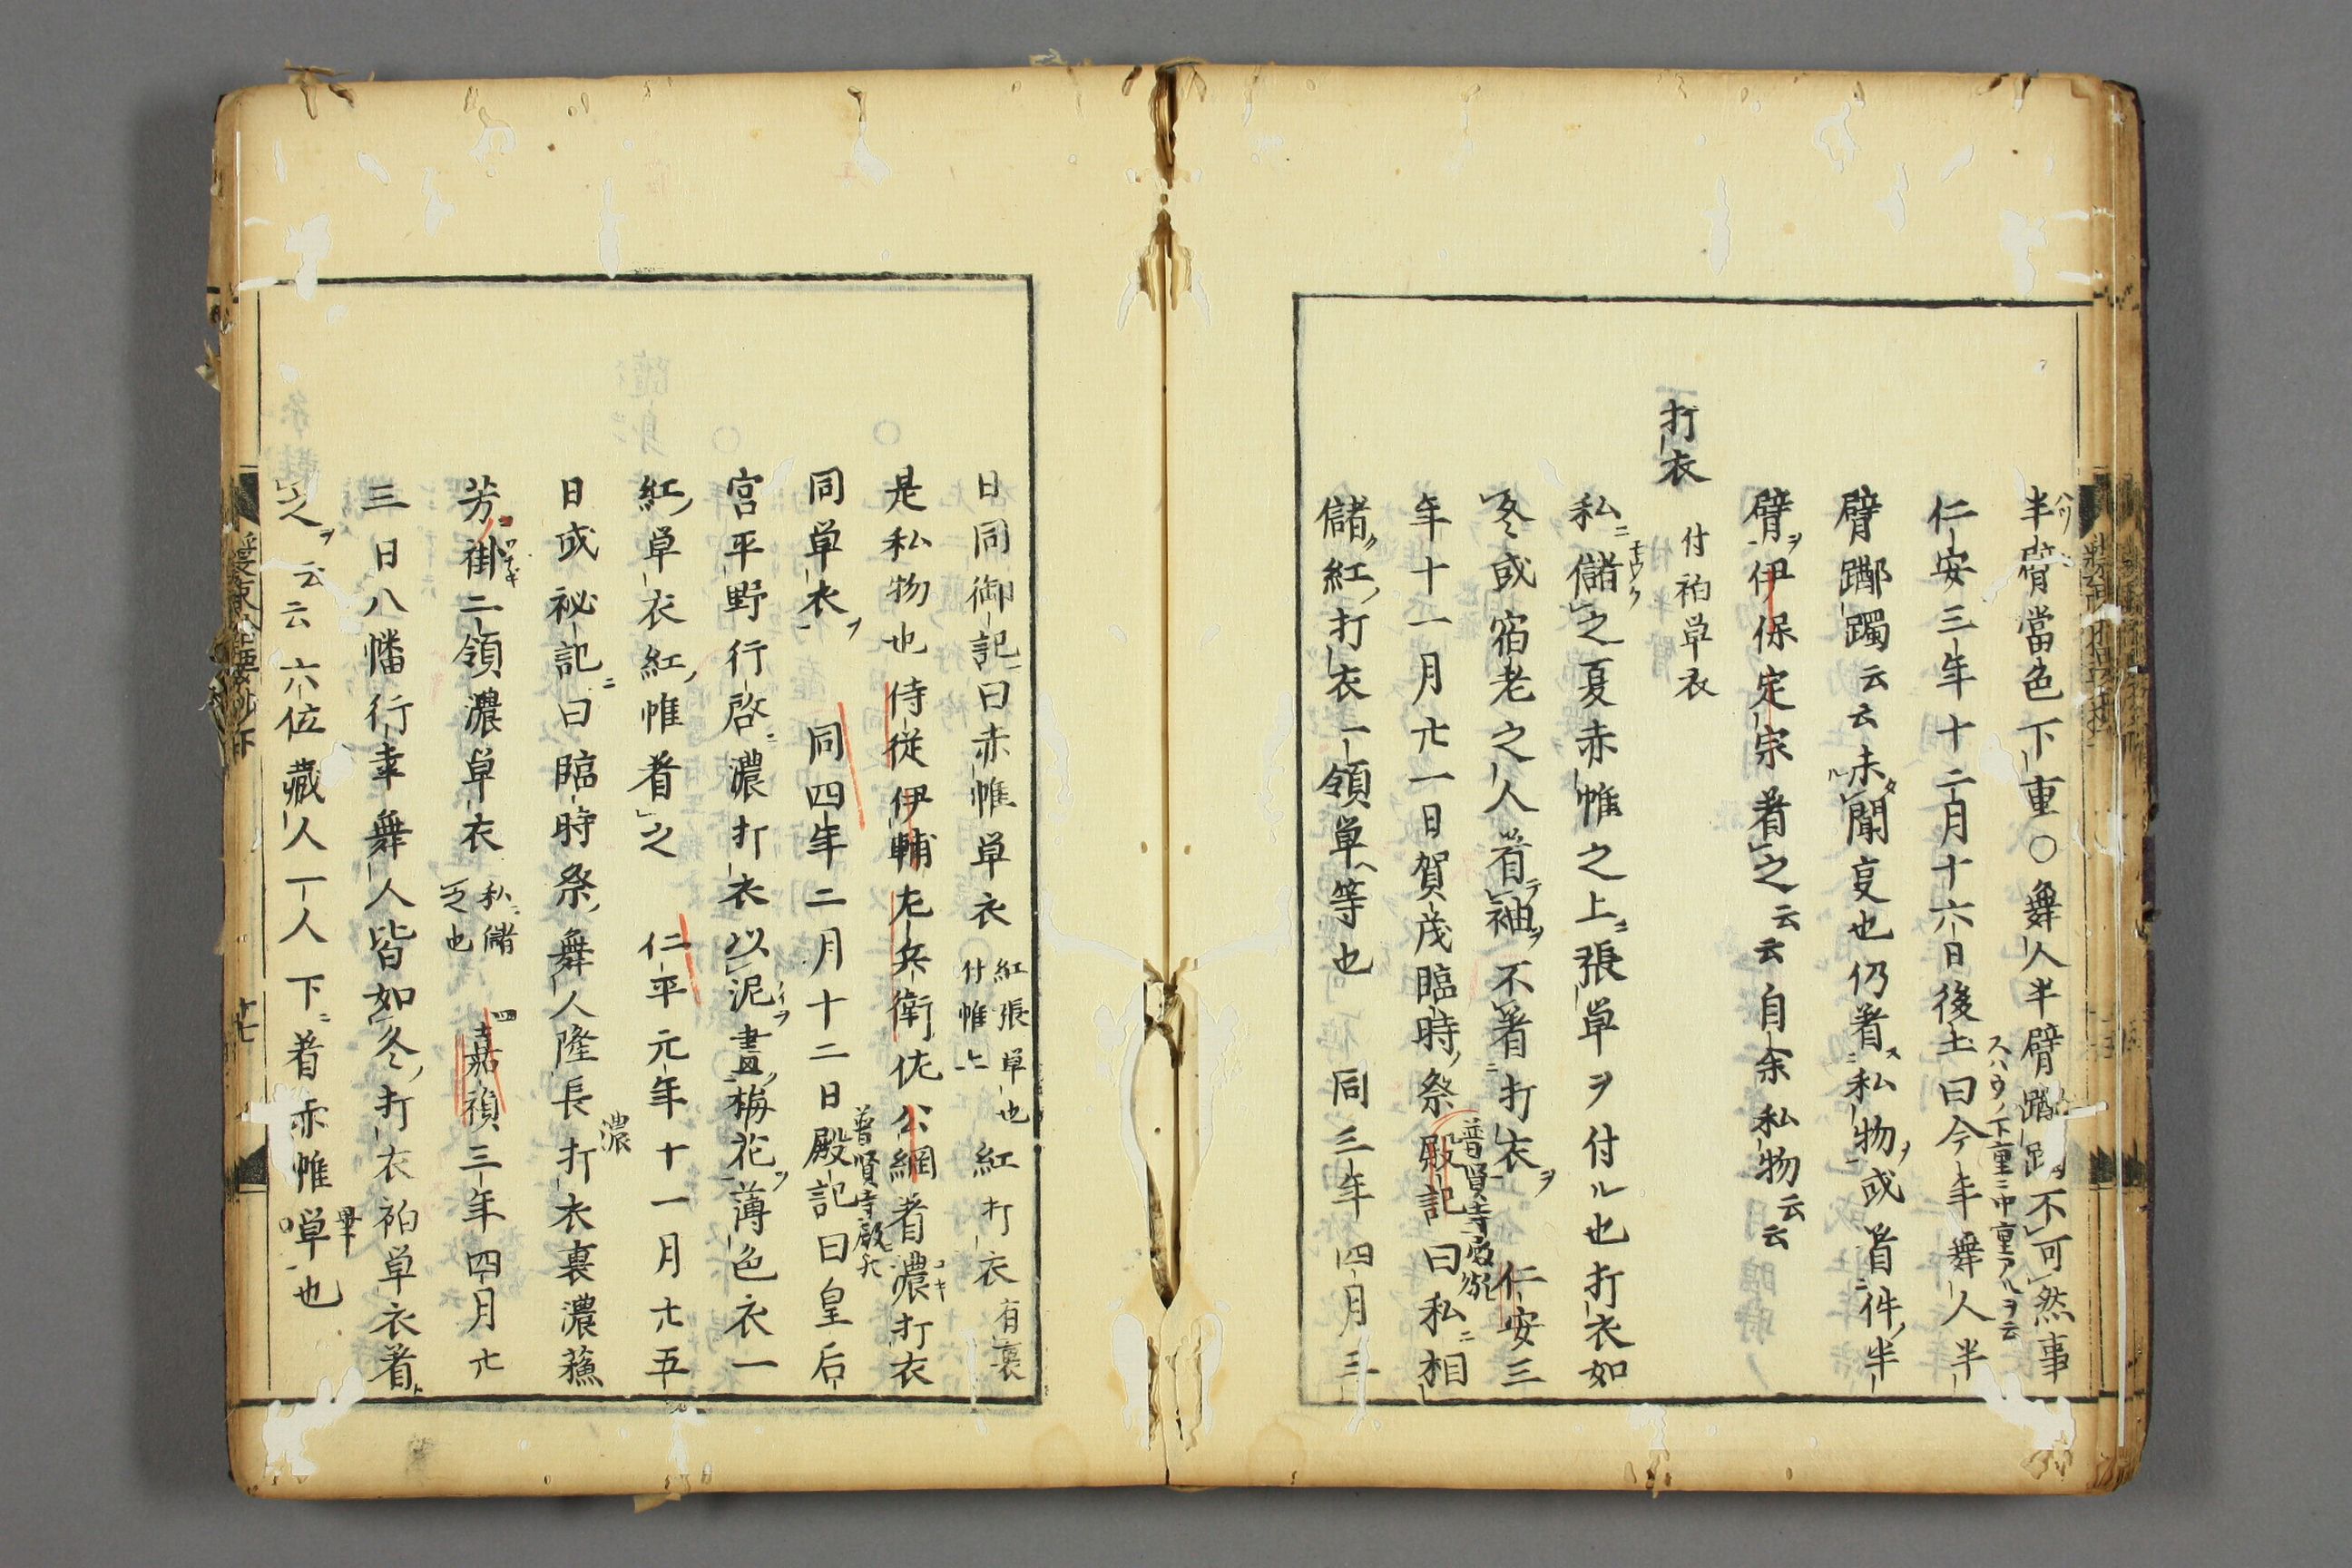 半臂當色下重○舞人半臂躑躅不可然事
スハウノ下重ニ中重アルヲ云
仁安三年十二月十六日後土曰今年舞人半
臂躑躅云云未聞㕝也仍着私物或着件半
臂伊保定宗着之云云自余私物云云
打衣 付祒単衣
私儲之夏赤帷之上張単ヲ付ル也打衣如
冬或宿老之人着袖不着打衣 仁安三
年十一月廿一日賀茂臨時祭殿記曰私相
普賢寺殿
儲紅打衣一領単等也 同三年四月三
日同御記曰赤帷単衣 紅張単也
付帷上 紅打衣 有裏
是私物也侍従伊輔左兵衛佐公綱着濃打衣
同単衣 同四年二月十二日殿記曰皇后
普賢寺殿
宮平野行啓濃打衣以泥畫梅花薄色衣一
紅単衣紅帷着之 仁平元年十一月廿五
日或祕記曰臨時祭舞人隆長打衣裏濃蘓
濃
芳褂二領濃単衣 私儲
之也 嘉禎三年四月廿
三日八幡行幸舞人皆如冬打衣祒単衣着
之云云六位藏人一人下着赤帷単也
畢
十七